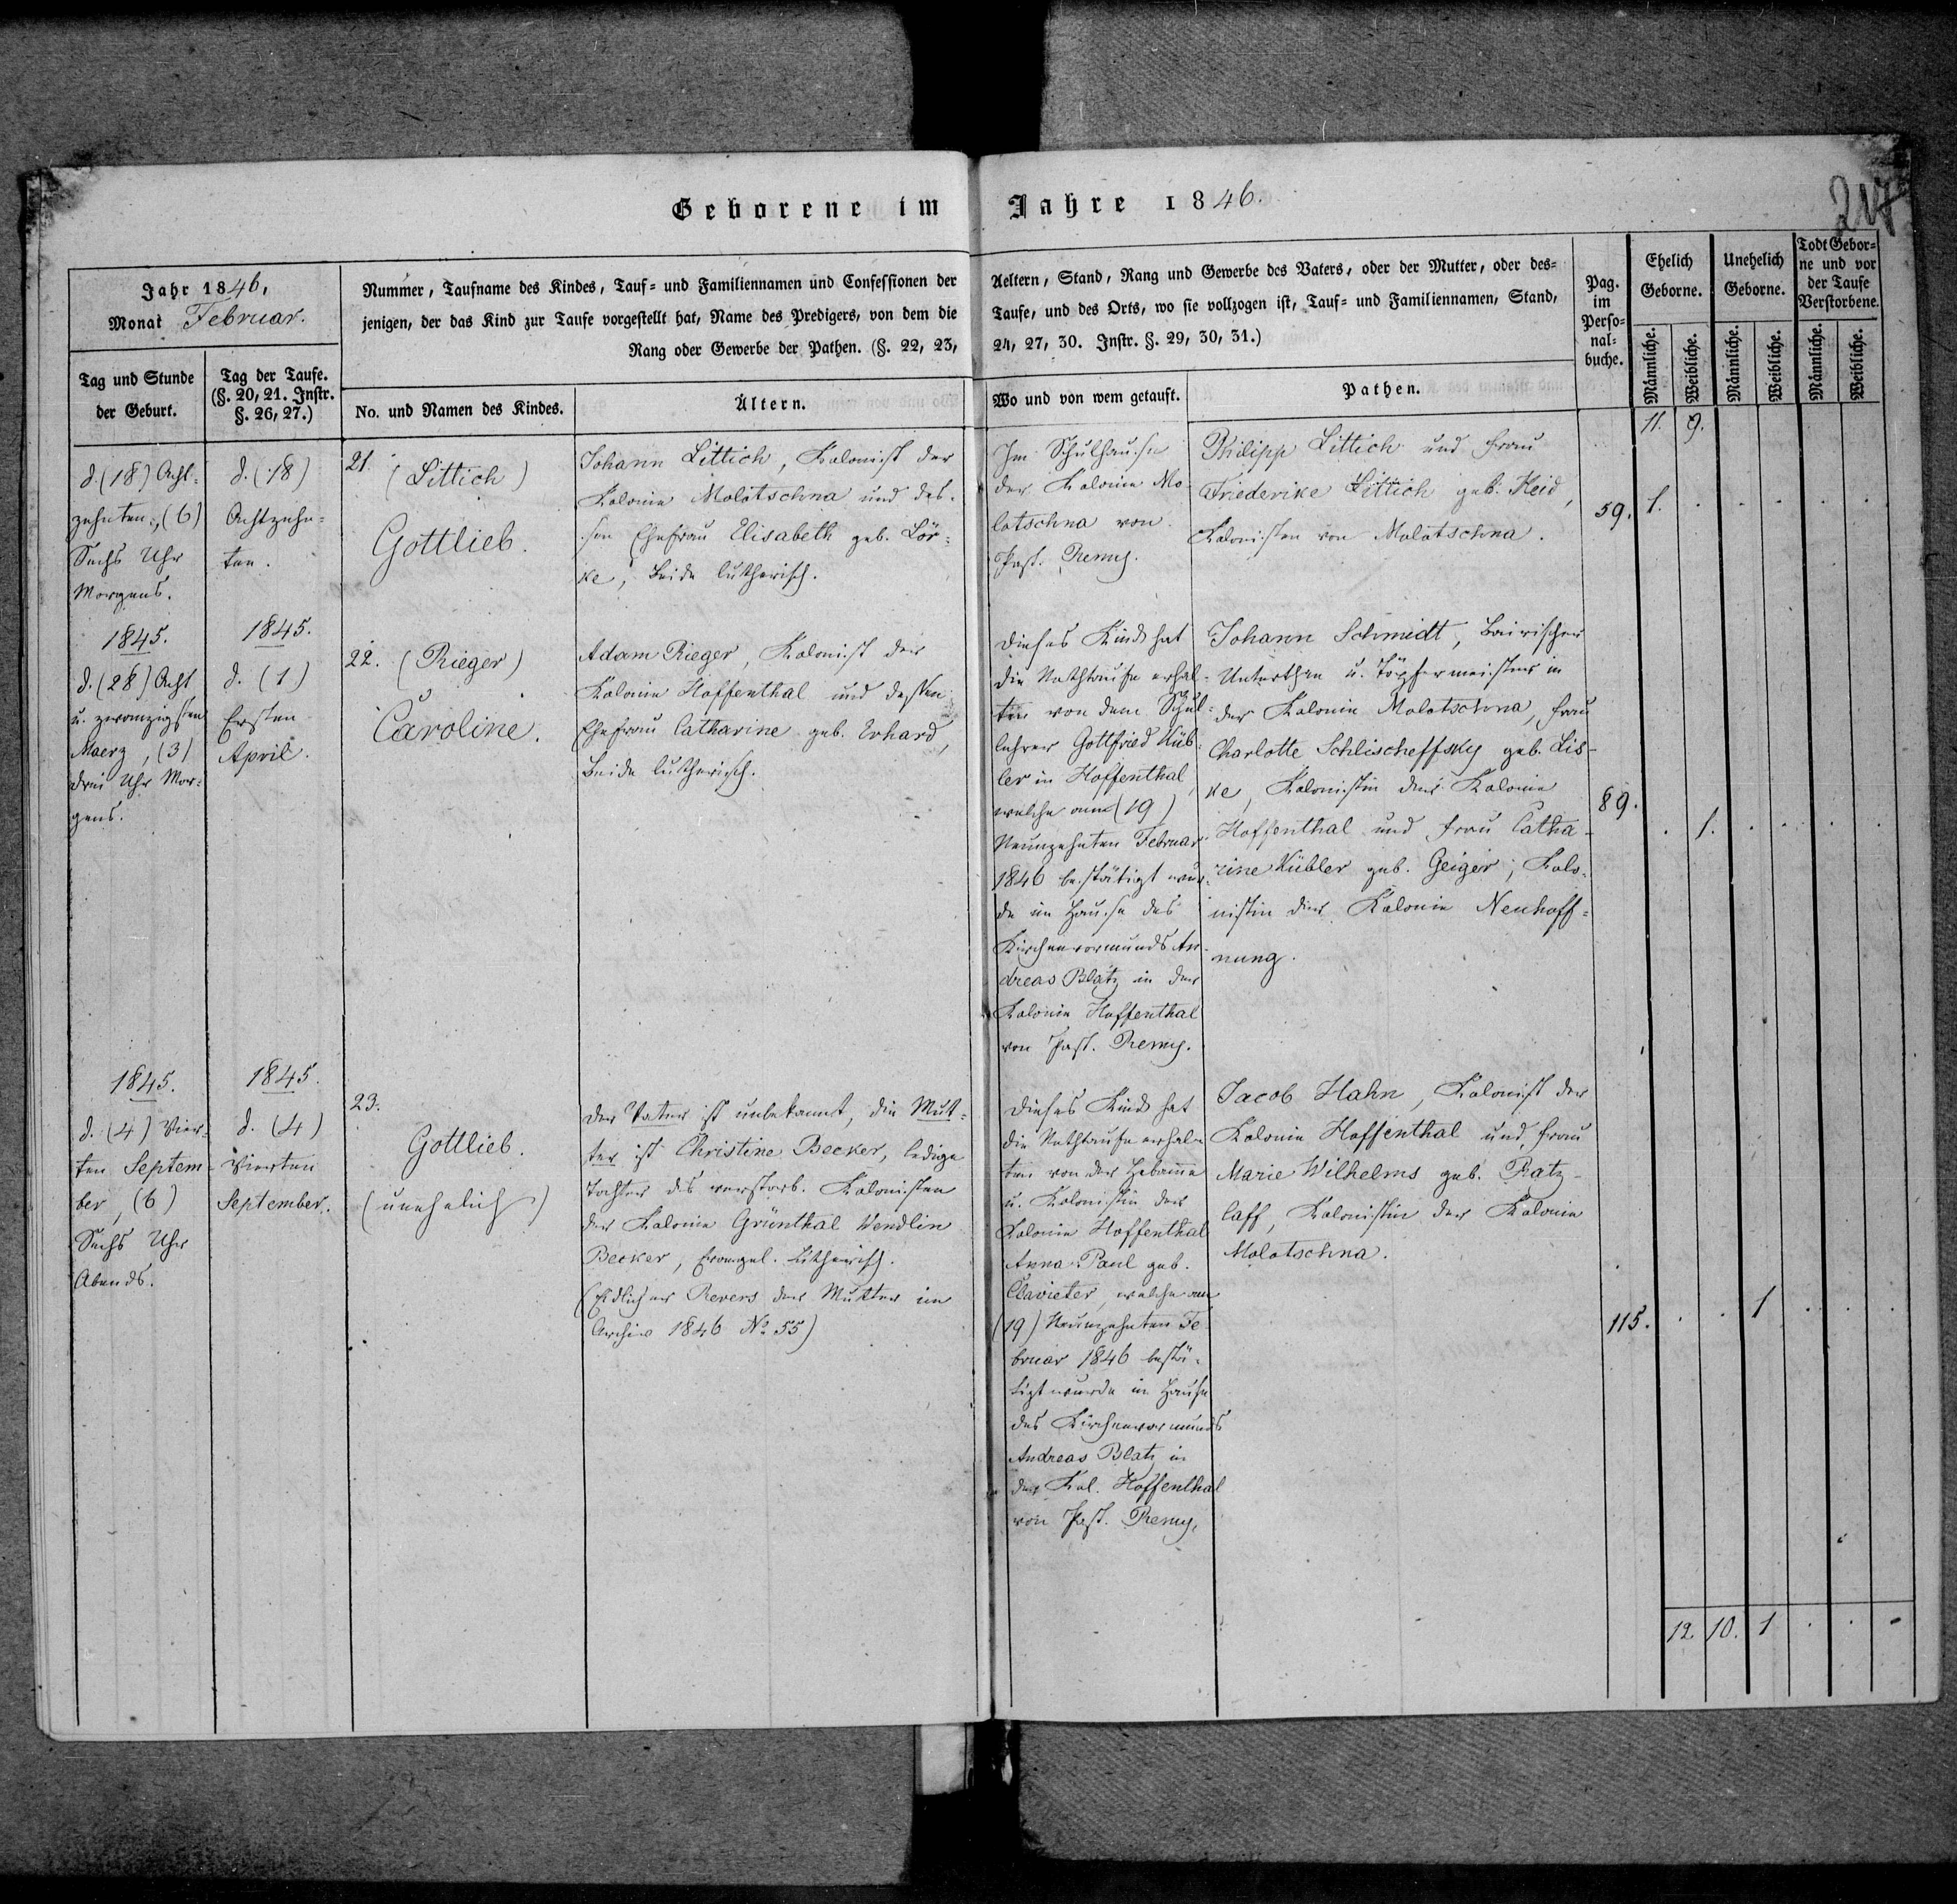 Geborene im Jahre 1846.
217
Jahr 1846,
Monat Februar.
Tag und Stunde
der Geburt.
Tag der Taufe.
(§. 20, 21. Instr.
§. 26, 27.)
Nummer, Taufname des Kindes, Tauf- und Familiennamen und Confessionen der Aeltern, Stand, Rang und Gewerbe des Vaters, oder der Mutter, oder des-
jenigen, der das Kind zur Taufe vorgestellt hat, Name des Predigers, von dem die Taufe, und des Orts, wo sie vollzogen ist, Tauf- und Familiennamen, Stand,
Rang oder Gewerbe der Pathen. (§. 22, 23, 24, 27, 30. Instr. §. 29, 30, 31.)
No. und Namen des Kindes.
Ältern.
Wo und von wem getauft.
Pathen.
Pag.
im
Perso-
nal-
buche.
Ehelich
Geborne.
Unehelich
Geborne.
Todt Gebor-
ne und vor
der Taufe
Verstorbene.
Männliche.
Weibliche.
Männliche.
Weibliche.
Männliche.
Weibliche.
11. 9.
d. (18) Acht-
zehnten, (6)
Sechs Uhr
Morgens.
d. (18)
Achtzehn-
ten.
21.
(Littich)
Gottlieb.
Johann Littich, Kolonist der
Kolonie Molotschna und des-
sen Ehefrau Elisabeth geb. Lör-
ke, beide lutherisch.
Im Schulhause
der Kolonie Mo-
lotschna von
Past. Remy.
Philipp Littich und Frau
Friederike Littich geb. Heid,
Kolonisten von Molotschna.
59. 1. . . . . .
1845.
d. (28) Acht
u. zwanzigsten
Maerz, (3)
drei Uhr Mor-
gens.
1845.
d. (1)
Ersten
April.
22. (Rieger)
Caroline.
Adam Rieger, Kolonist der
Kolonie Hoffenthal und dessen
Ehefrau Catharine geb. Erhard,
beide lutherisch.
Dieses Kind hat
die Nothtaufe erhal-
ten von dem Schul-
lehrer Gottfried Küb-
ler in Hoffenthal,
welche am (19)
Neunzehnten Februar
1846 bestätigt wur-
de im Hause des
Kirchenvormunds An-
dreas Blatz in der
Kolonie Hoffenthal
von Past. Remy.
Johann Schmidt, bairischer
Unterthan u. Töpfermeister in
der Kolonie Molotschna, Frau
Charlotte Schlischeffsky geb. Lis-
ke, Kolonistin der Kolonie
Hoffenthal und Frau Catha-
rine Kübler geb. Geiger, Kolo-
nistin der Kolonie Neuhoff-
nung.
89. . 1. . . . .
1845.
d. (4) Vier-
ten Septem-
ber, (6)
Sechs Uhr
Abends.
1845.
d. (4)
Vierten
September.
23.
Gottlieb.
(unehelich)
Der Vater ist unbekannt, die Mut-
ter ist Christine Becker, ledige
Tochter des verstorb. Kolonisten
der Kolonie Grünthal Wendlin
Becker, evangel. lutherisch.
(Eidlicher Revers der Mutter im
Archiv 1846 No. 55)
Dieses Kind hat
die Nothtaufe erhal-
ten von der Hebamme
u. Kolonistin der
Kolonie Hoffenthal
Anna Paul geb.
Clavieter, welche am
(19) Neunzehnten Fe-
bruar 1846 bestä-
tigt wurde im Hause
des Kirchenvormunds
Andreas Blatz in
der Kol. Hoffenthal
von Past. Remy.
Jacob Hahn, Kolonist der
Kolonie Hoffenthal und Frau
Marie Wilhelms geb. Ratz-
laff, Kolonistin der Kolonie
Molotschna.
115. . . 1 . . .
12. 10. 1 . . -